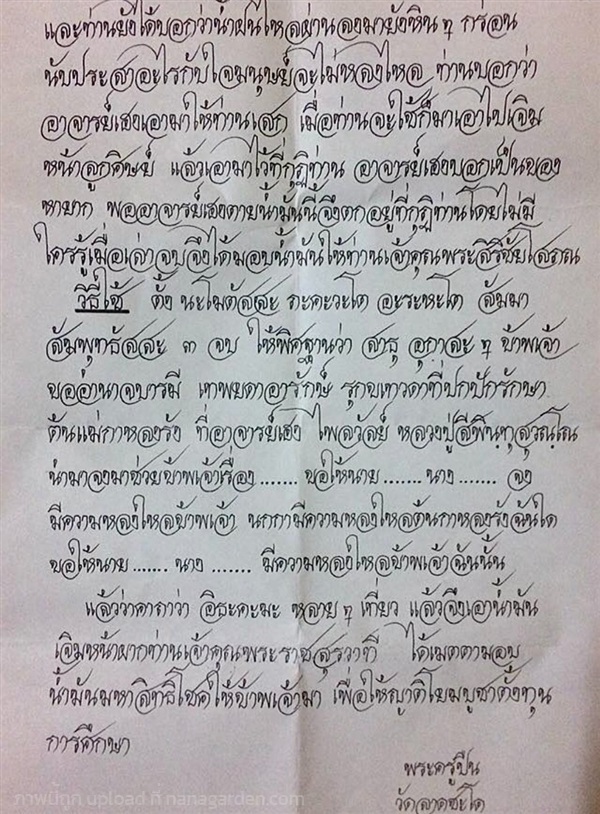 และท่านยังได้บอกว่าน้ำฝนไหลผ่านลงมายังหิน ๆ กร่อน
นับประสาอะไรกับใจมนุษย์จะไม่หลงไหล ท่านบอกว่า
อาจารย์เฮงเอามาให้ท่านเสก เมื่อท่านจะใช้ก็มาเอาไปเจิม
หน้าลูกศิษย์ แล้วเอามาไว้ที่กุฏิท่าน อาจารย์เฮงบอกเป็นของ
หายาก พออาจารย์เฮงตายน้ำมันนี้จึงตกอยู่ที่กุฏิท่านโดยไม่มี
ใครรู้เมื่อเล่าจบจึงได้มอบน้ำมันให้ท่านเจ้าคุณพระสิริชัยโสภณ
วิธีใช้ ตั้ง นะโมตัสสะ ภะคะวะโต อะระหะโต สัมมา
สัมพุทธัสสะ ๓ จบ ให้พิศฐานว่า สาธุ อุกาสะ ๆ ข้าพเจ้า
ขออำนาจบารมี เทพยดาอารักษ์ รุกขเทวดาที่ปกปักรักษา
ต้นแม่กาหลงรัง ที่อาจารย์เฮง ไพลวัลย์ หลวงปู่สีพินฺทุสุวณฺโณ
นำมาจงมาช่วยข้าพเจ้าเรื่อง ....... ขอให้นาย ....... นาง ....... จง
มีความหลงใหลข้าพเจ้า นกกามีความหลงใหลต้นกาหลงรังฉันใด
ขอให้นาย ....... นาง ....... มีความหลงใหลข้าพเจ้าฉันนั้น
แล้วว่าคาถาว่า อิธะคะมะ หลาย ๆ เที่ยว แล้วจึงเอาน้ำมัน
เจิมหน้าผากท่านเจ้าคุณพระราชสุรวาที ได้เมตตามอบ
น้ำมันมหาสิทธิโชคให้ข้าพเจ้ามา เพื่อให้ญาติโยมบูชาตั้งทุน
การศึกษา
พระครูปืน
วัดลาดชะโด
ภาพนี้ถูก upload ที่ nanagarden.com